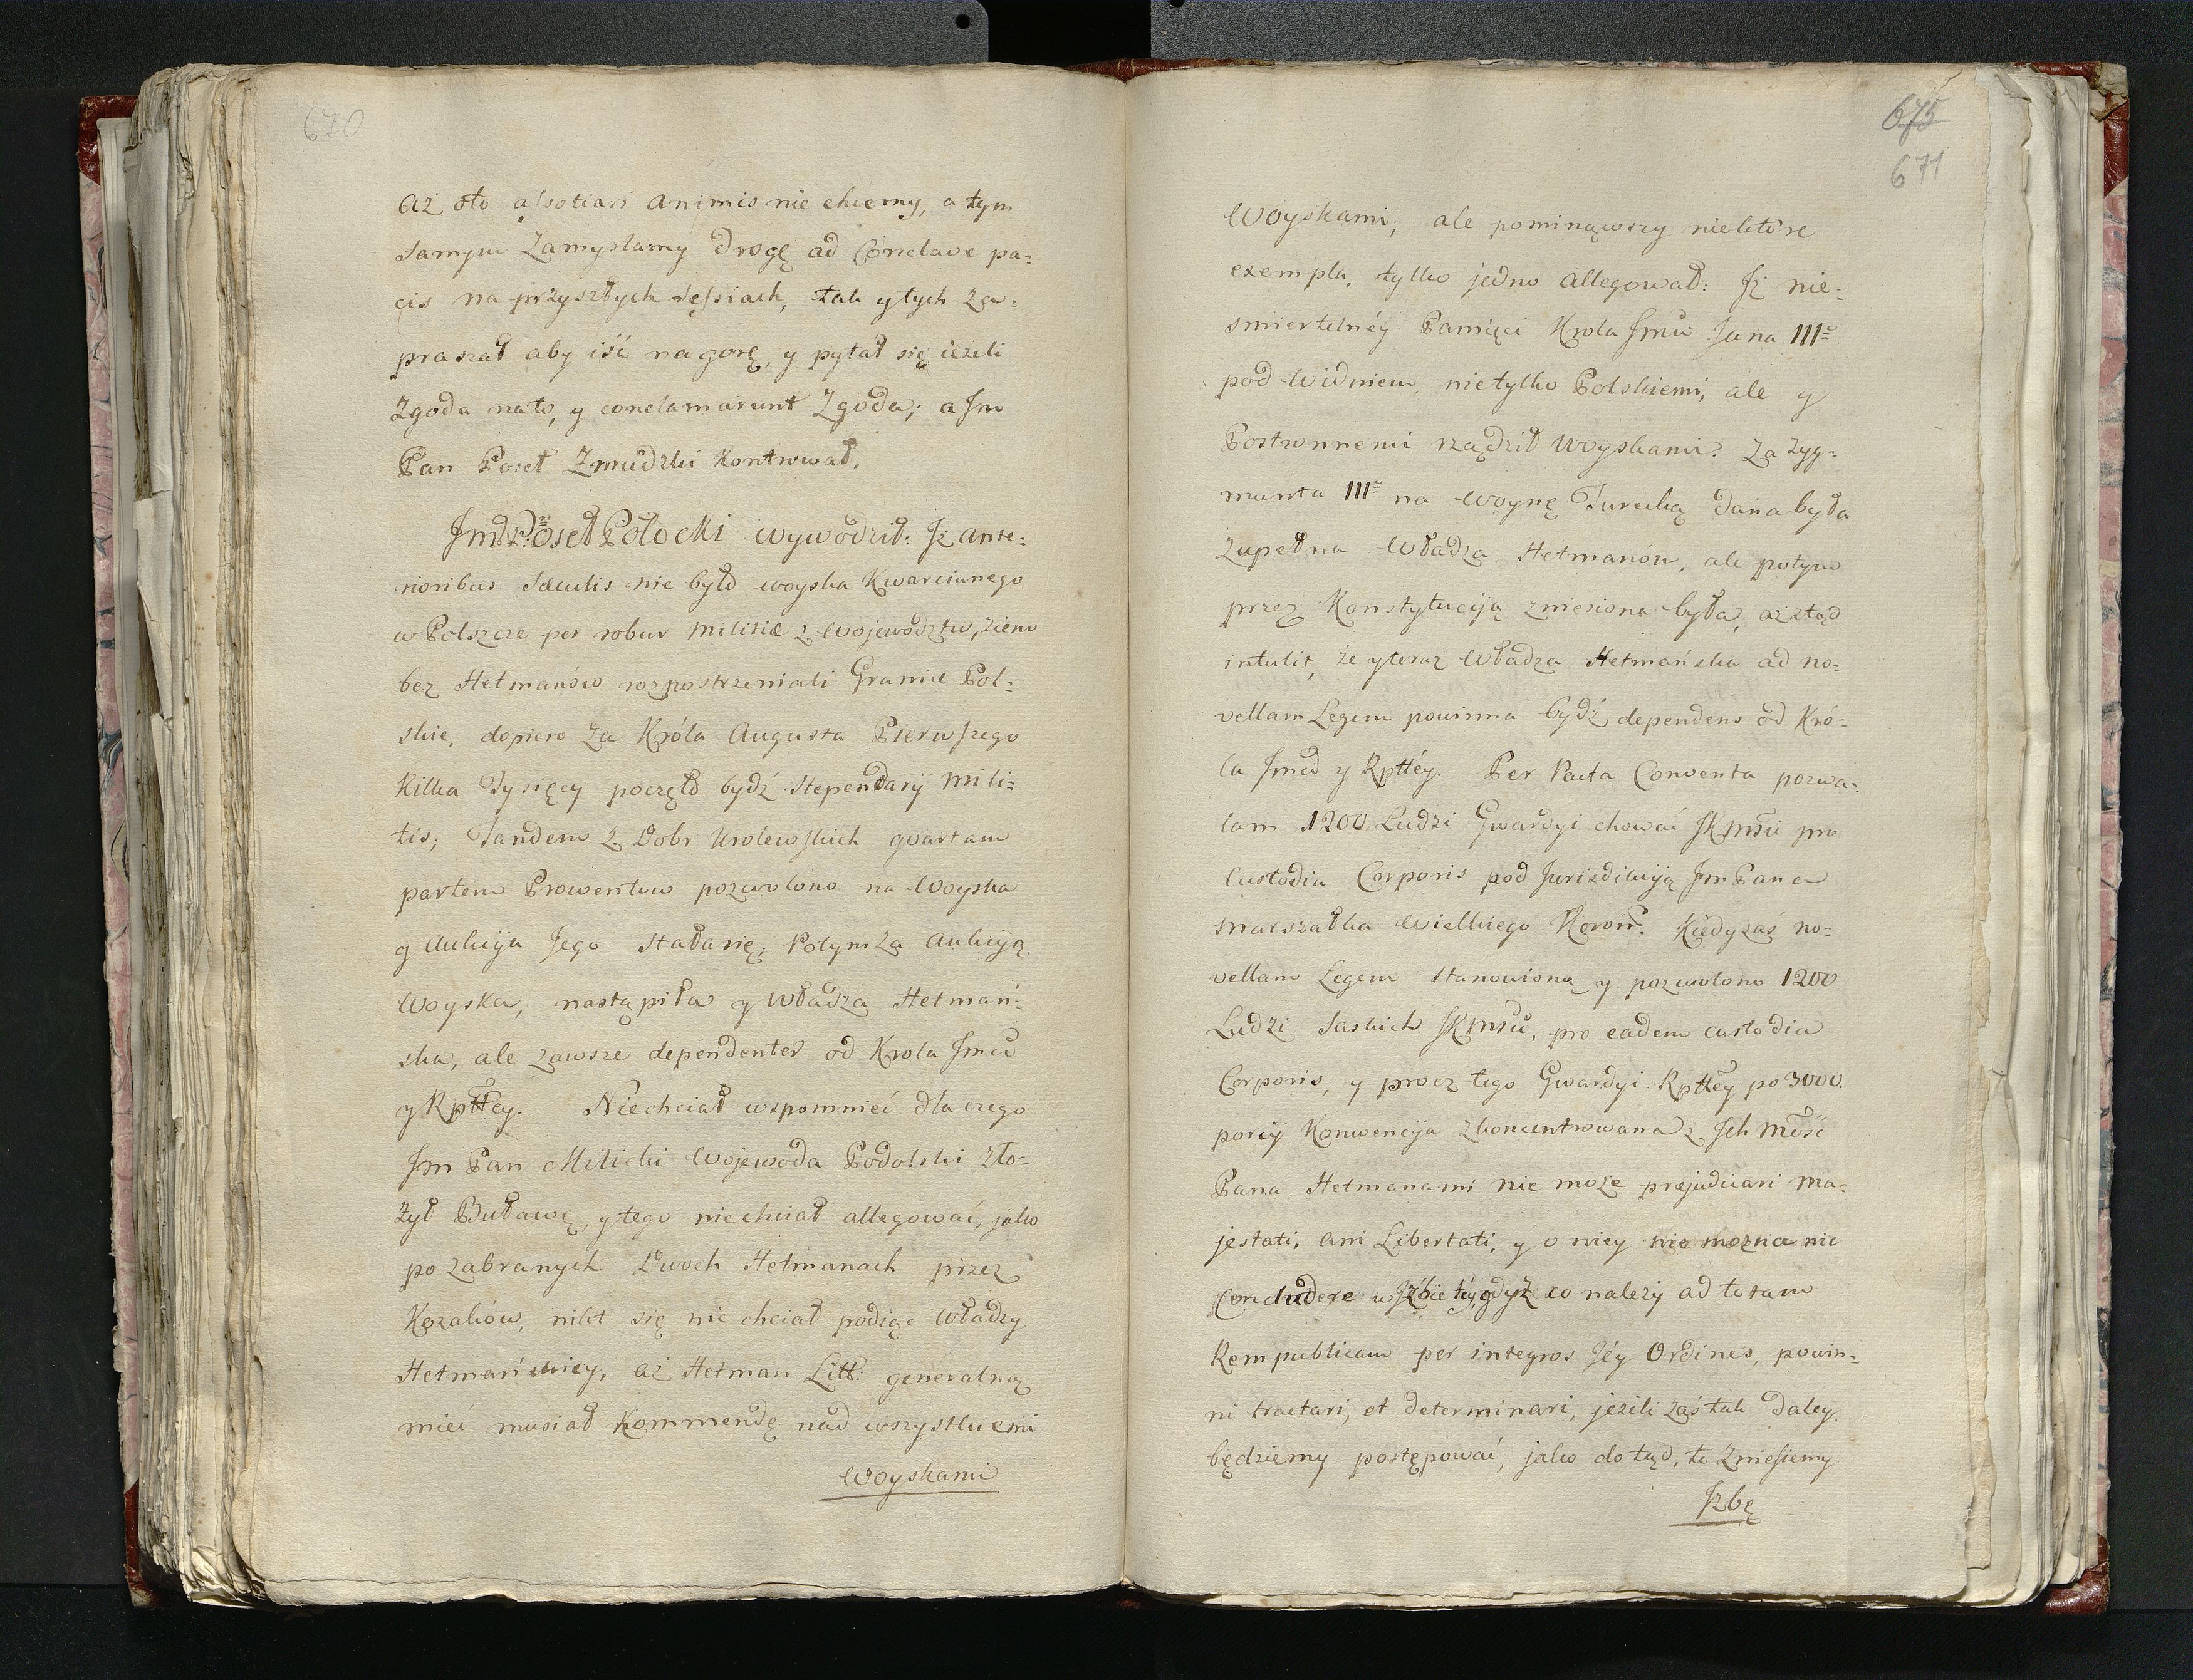 670
Aż oto aſsotiari animis nie chcemy, a tym
samym zamysłamy Drogę ad Conclave pa=
cis na przyszłych Seſsiach, tak y tych za=
praszał aby iść na gorę, y pytał się ieżeli
Zgoda na to, y conclamarunt Zgoda; a Jm
Pan Poseł Zmudzki Kontrował.
Jmć P. Poseł Połocki wywodził: Jż ante=
rioribus Sæculis nie było woyska Kwarcianego
w Polszcze per robur Militiæ z Wojewodztw, ziem
bez Hetmanów rozpostrzeniali Granice Pol=
skie, dopiero za Króla Augusta Pierwſzego
Kilka Tysięcy poczęło bydź Stependarij Mili=
tis; Tandem z Dobr Krolewſkich quartam
partem Prowentow pozwolono na Woyska
y Aukcyja Jego Stała się; Potym za Aukcyją
Woyska, nastąpiła y Władza Hetmań=
ska, ale zawsze dependenter od Krola Jmci
y Rpttey. Niechciał wspomnieć dla czego
Jm Pan Wojewoda Podolski zło=
żył Buławę, y tego niechciał allegować, jako
po zabranych Dwoch Hetmanach przez
Kozaków, nikt się nie chciał podiąc Władzy
Hetmańskiey, aż Hetman Litt: generalną
mieć musiał Kommendę nad wszystkiemi
Woyskami
675
671
Woyskami, ale pominąwszy niektóre
exempla, tylko jedno allegował: Jż nie=
smiertelnéy Pamięci Krola Jmci Jana III°
pod Widniem nietylko Polskiemi, ale y
Postronnemi rządził Woyskami. Za Zyg=
munta III° na Woynę Turecką dana była
zupełna Władza Hetmanów, ale potym
przez Konstytucyją zniesiona była, aż ztąd
intulit, że y teraz Władza Hetmańska ad no=
vellam Legem powinna bydź dependens od Kró=
la Jmci y Rpttéy. Per Pacta Conventa pozwa=
lam 1200 Ludzi Gwardyi chować JKMści pro
Custodia Corporis pod Jurisdikcyją Jm Pana
Marszałka Wielkiego Koron. Kiedyzaś no=
vellam Legem stanowioną y pozwolono 1200
Ludzi Saskich JKMści, pro eadem custodia
Corporis, y procz tego Gwardyi Rpttey po 3000.
porcij Konwencyja zkoncentrowana z Jch Mość
Pana Hetmanami nie może præjudicari Ma=
jestati, ani Libertati, y o niey nie można nic
Concludere w Jzbie téy, gdyż co należy ad totam
Rempublicam per integros Jéy Ordines, powin=
ni tractari, et determinari, jeżeli zaś tak daley
będziemy postępować, jako dotąd, to Znieſiemy
Jzbę